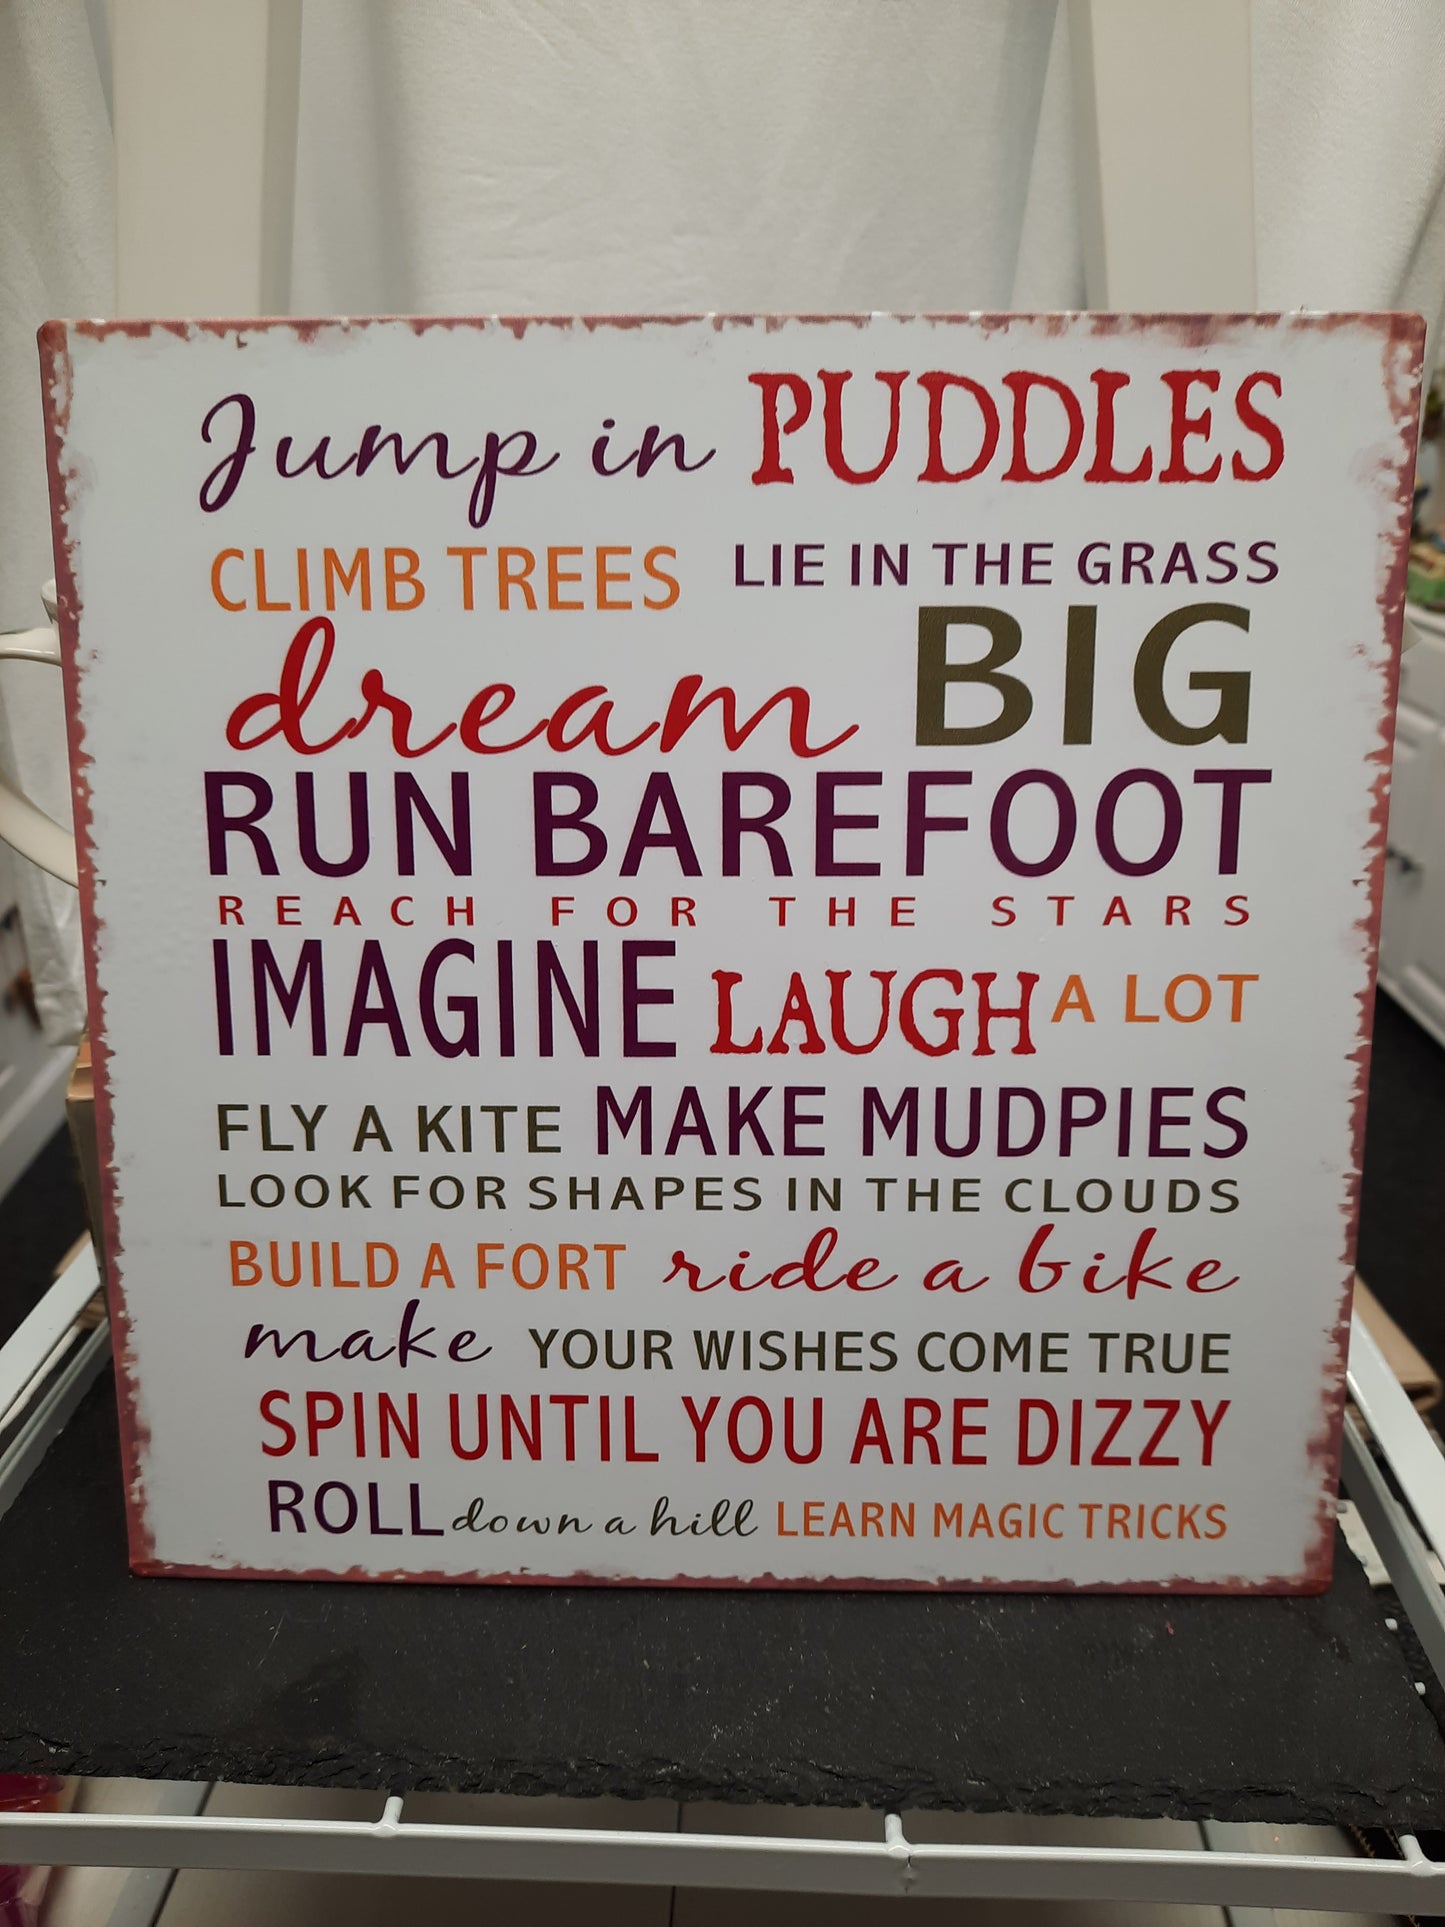 Jump in PUDDLES
CLIMB TREES LIE IN THE GRASS
dream BIG
RUN BAREFOOT
REACH FOR THE STARS
IMAGINE LAUGH A LOT
FLY A KITE MAKE MUDPIES
LOOK FOR SHAPES IN THE CLOUDS
BUILD A FORT ride a bike
make YOUR WISHES COME TRUE
SPIN UNTIL YOU ARE DIZZY
ROLL down a hill LEARN MAGIC TRICKS